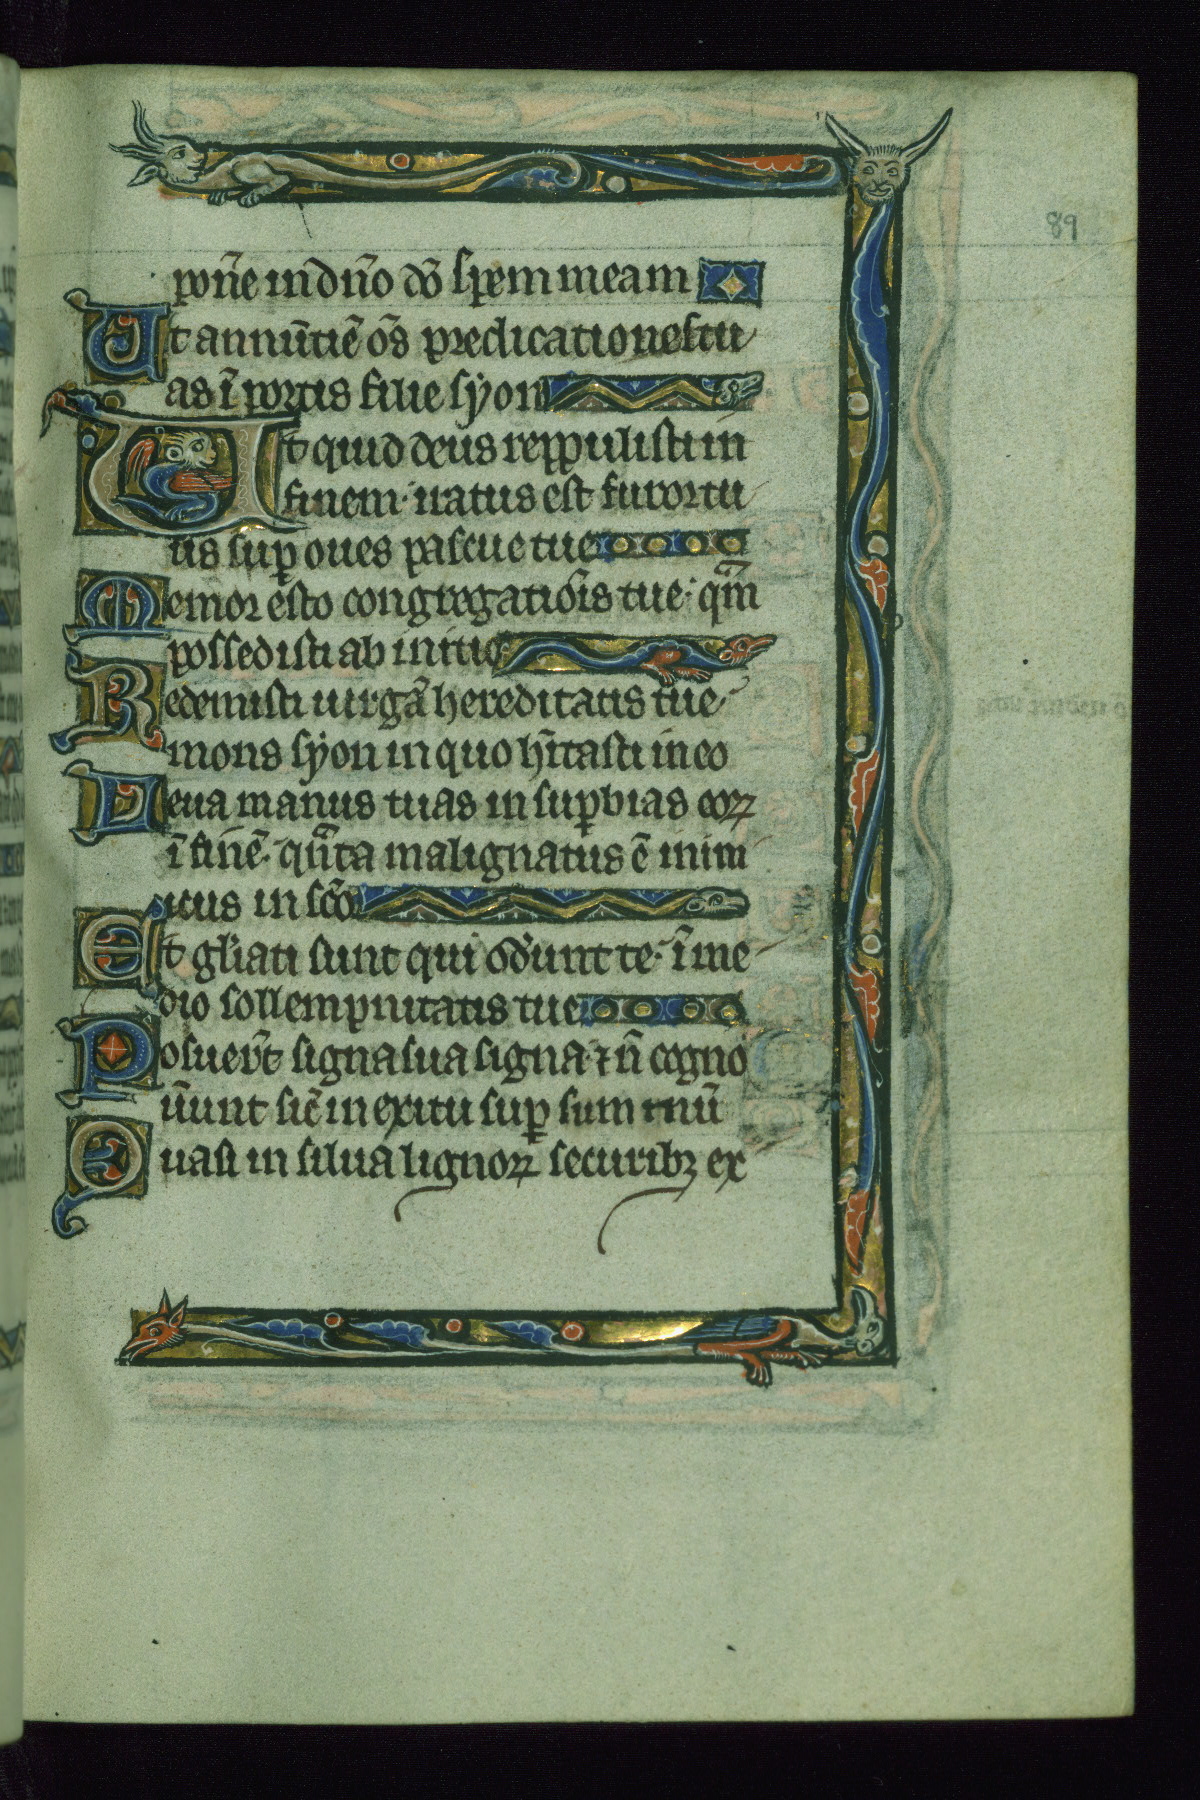 89
pon̄e in dn̄o dō spem meam
Ut annūtiē os̄ predicationes tu
as ī portis filie syon
Ut quid deus reppulisti in
finem· iratus est furor tu
us sup oues pascue tue
Memor esto congregatiōis tue· qm̄
possedisti ab initio
Redemisti uirgā hereditatis tue·
mons syon in quo hītasti in eo
Leua manus tuas in supbias eoꝝ
ī finē· qn̄ta malignatus ē inim
icus in scō
Et gl̄iati sunt qui oderunt te· ī me
dio sollempnitatis tue
Posuer̄t signa sua signa· ⁊ n̄ cogno
ūunt sic̄ in exitu sup sum mū
Quasi in silua lignoꝝ securibꝫ ex